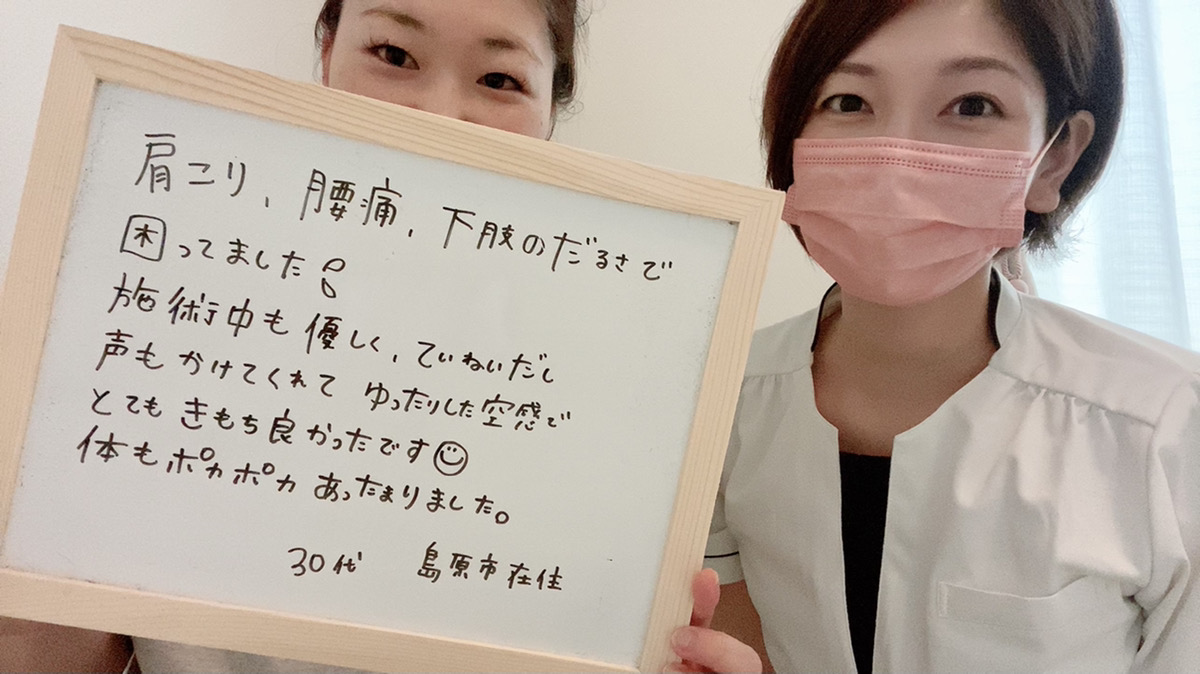 肩こり、腰痛、下肢のだるさで
困ってました!
施術中も優しく、ていねいだし
声もかけてくれて ゆったりした空感で
とてもきもち良かったです☺
体もポカポカ あったまりました。
30代 島原市在住